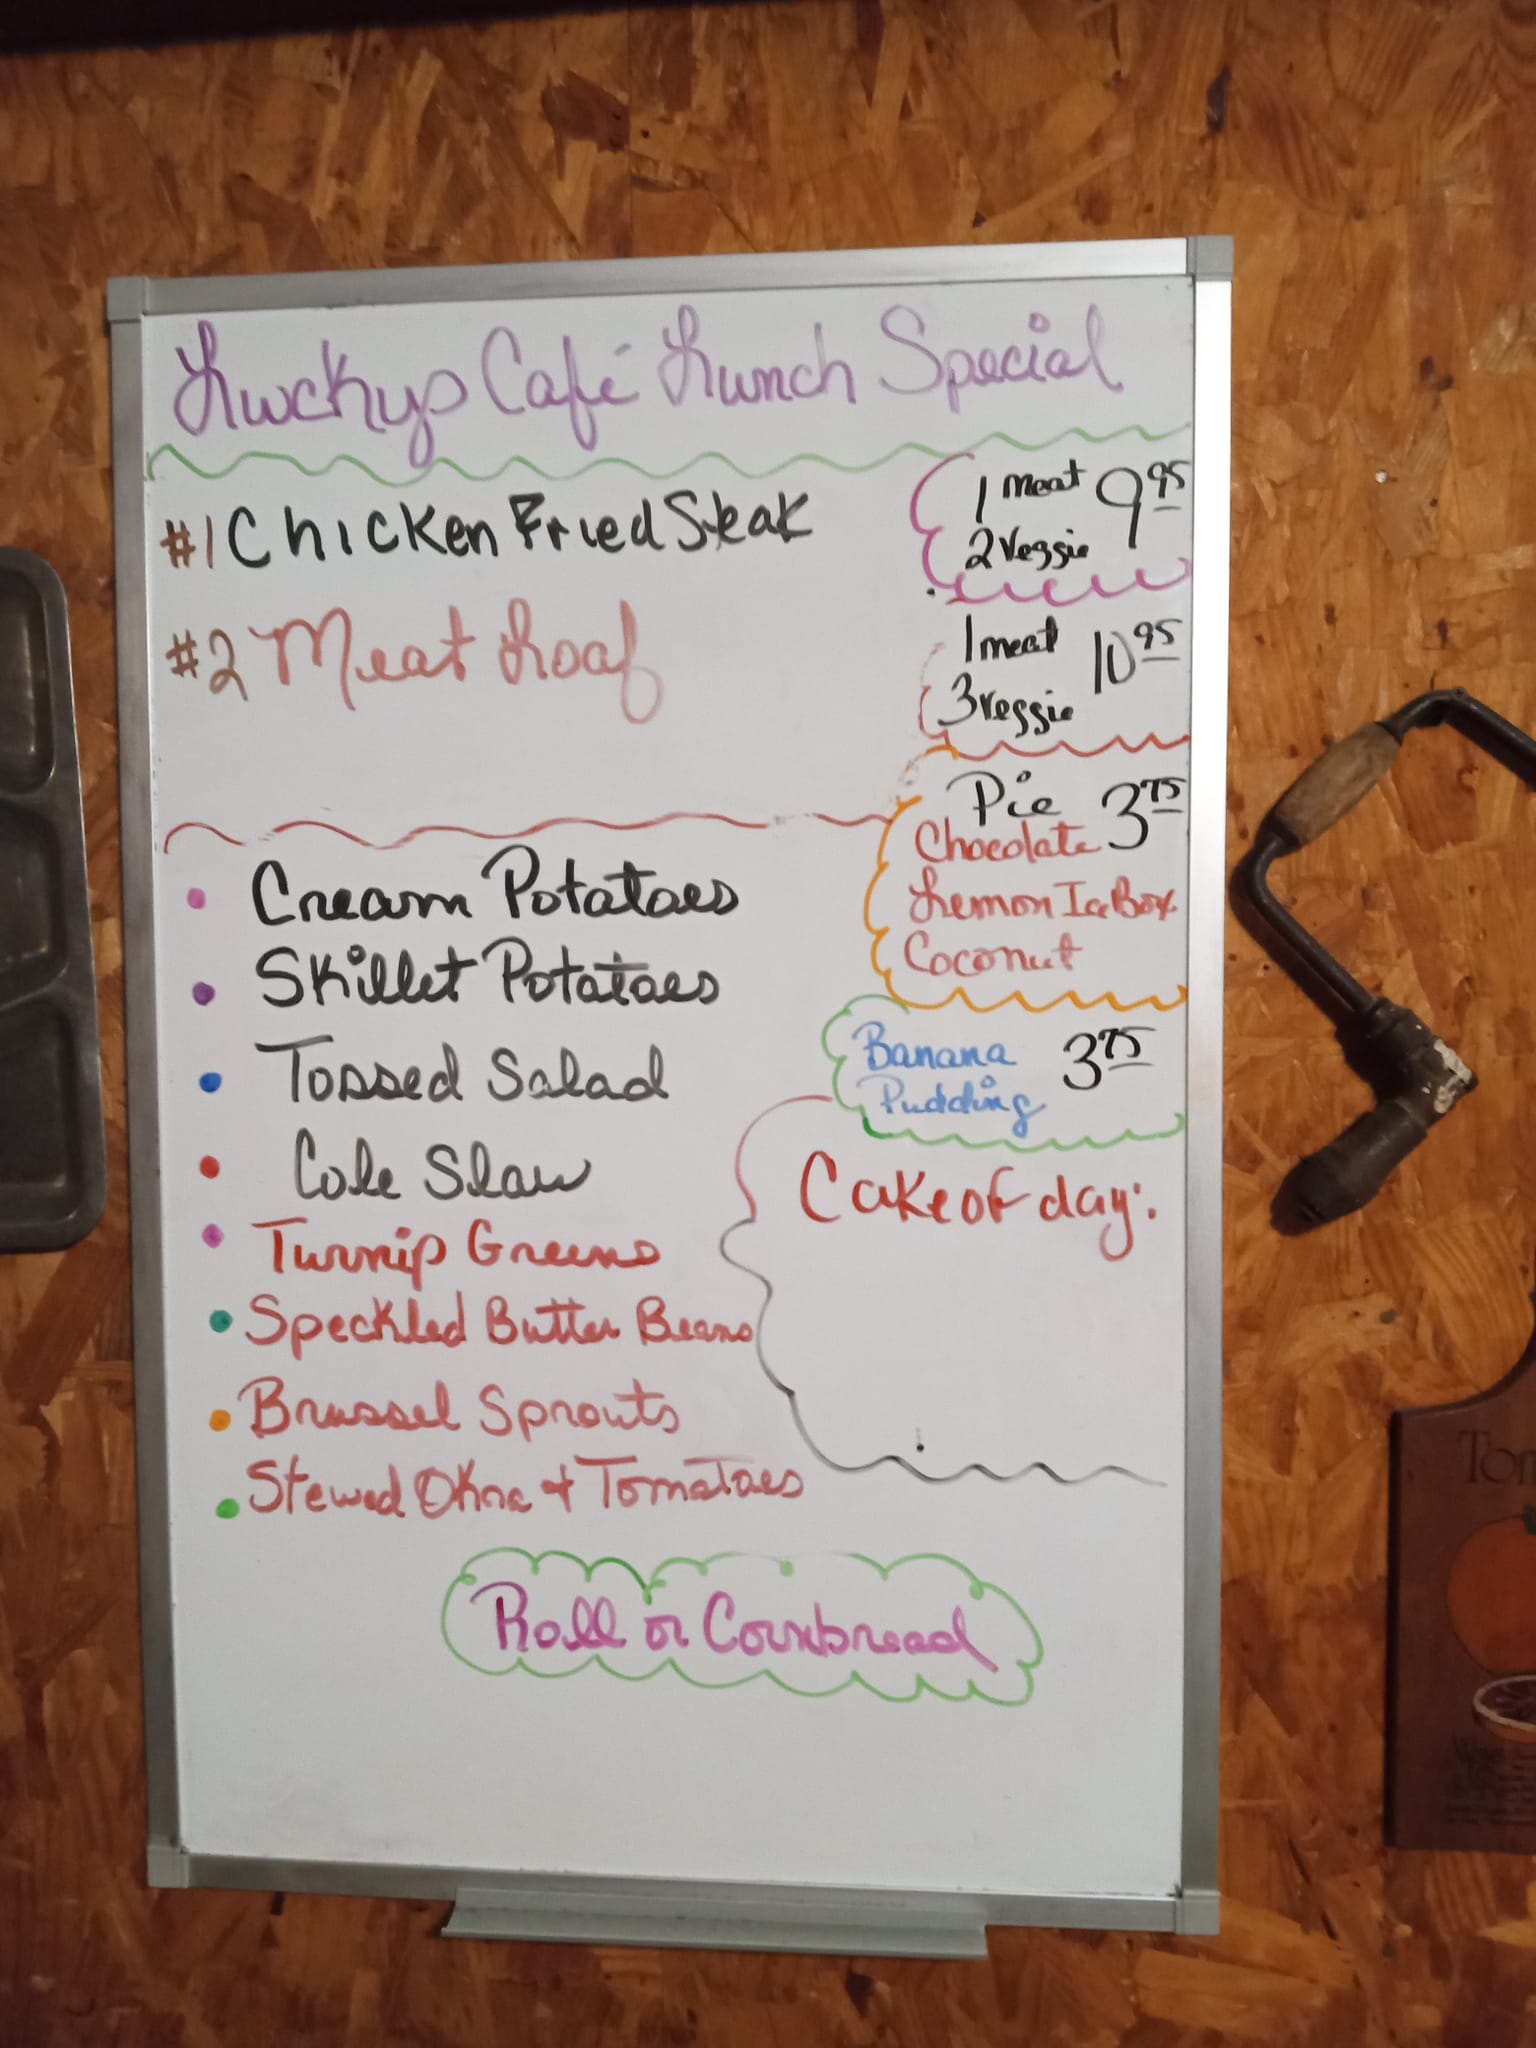 Luckys Café Lunch Special
#1 Chicken Fried Steak
#2 Meat Loaf
1 meat 9 95
2 Veggie
1 meat 10 95
3 veggie
Pie 3 75
Chocolate
Lemon Ice Box
Coconut
Banana 3 75
Pudding
Cake of day:
Cream Potatoes
Skillet Potatoes
Tossed Salad
Cole Slaw
Turnip Greens
Speckled Butter Beans
Brussel Sprouts
Stewed Okra & Tomatoes
Roll or Cornbread